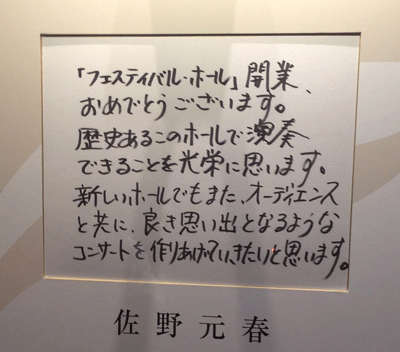 「フェスティバル・ホール」開業、
おめでとうございます。
歴史あるこのホールで演奏
できることを光栄に思います。
新しいホールでもまた、オーディエンス
と共に、良き思い出となるような
コンサートを作りあげていきたいと思います。
佐野元春